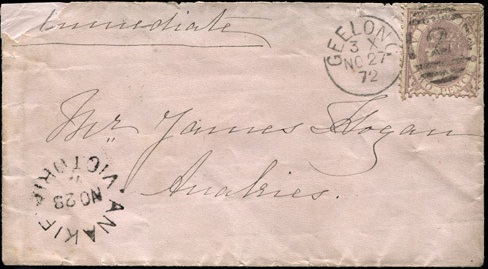 Immediate
GEELONG
3 X
NO 27
72
TWO PENCE
Mr James Hogan
Anakies.
ANAKIE
NO 28
VICTORIA